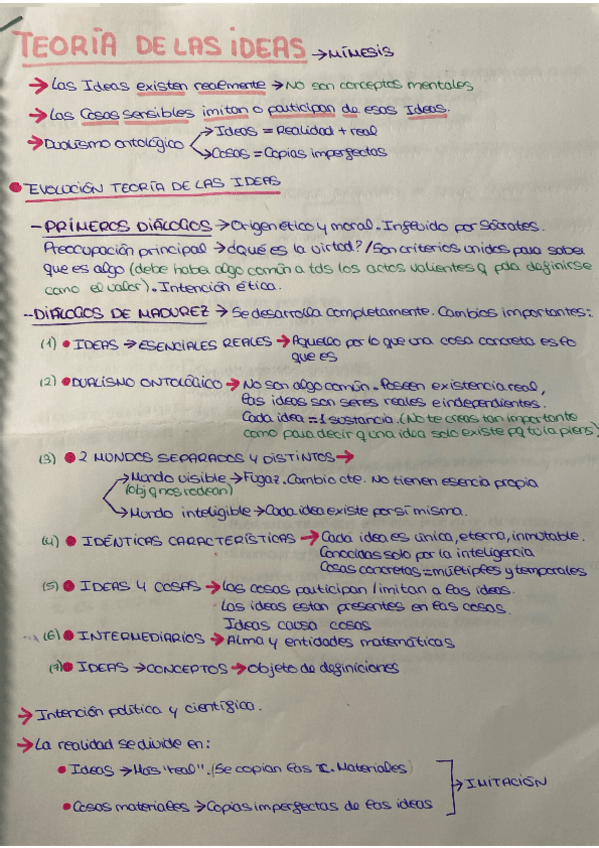 TEORÍA DE LAS IDEAS → MÍMESIS
→ Las Ideas existen realmente → No son conceptos mentales
→ Las Cosas sensibles imitan o participan de esas Ideas.
→ Dualismo ontológico → Ideas = Realidad + real
→ Cosas = Copias imperfectas
• EVOLUCIÓN TEORÍA DE LAS IDEAS
- PRIMEROS DIÁLOGOS → Origen ético y moral. Infuido por Sócrates.
Preocupación principal → ¿Qué es la virtud? / Son criterios unidos para saber
que es algo (debe haber algo común a tds los actos valientes q pda definirse
como el valor). Intención ética.
- DIÁLOGOS DE MADUREZ → Se desarrolla completamente. Cambios importantes:
(1) • IDEAS → ESENCIALES REALES → Aquello por lo que una cosa concreta es lo
que es
(2) • DUALISMO ONTOLÓGICO → No son algo común. Poseen existencia real,
las ideas son seres reales e independientes.
Cada idea = 1 sustancia. (No te creas tan importante
como para decir q una idea solo existe pq tú la piens)
(3) • 2 MUNDOS SEPARADOS Y DISTINTOS →
→ Mundo visible → Fugaz. Cambio cte. No tienen esencia propia
(obj q nos rodean)
→ Mundo inteligible → Cada idea existe por sí misma.
(4) • IDÉNTICAS CARACTERÍSTICAS → Cada idea es única, eterna, inmutable.
Conocidas solo por la inteligencia
Cosas concretas = múltiples y temporales
(5) • IDEAS Y COSAS → Las cosas participan / imitan a las ideas.
Las ideas estan presentes en las cosas.
Ideas causa cosas
(6) • INTERMEDIARIOS → Alma y entidades matemáticas
(7) • IDEAS → CONCEPTOS → Objeto de definiciones
→ Intención política y científica.
→ La realidad se divide en:
• Ideas → Más "real". (Se copian las Materiales)
→ IMITACIÓN
• Cosas materiales → Copias imperfectas de las ideas